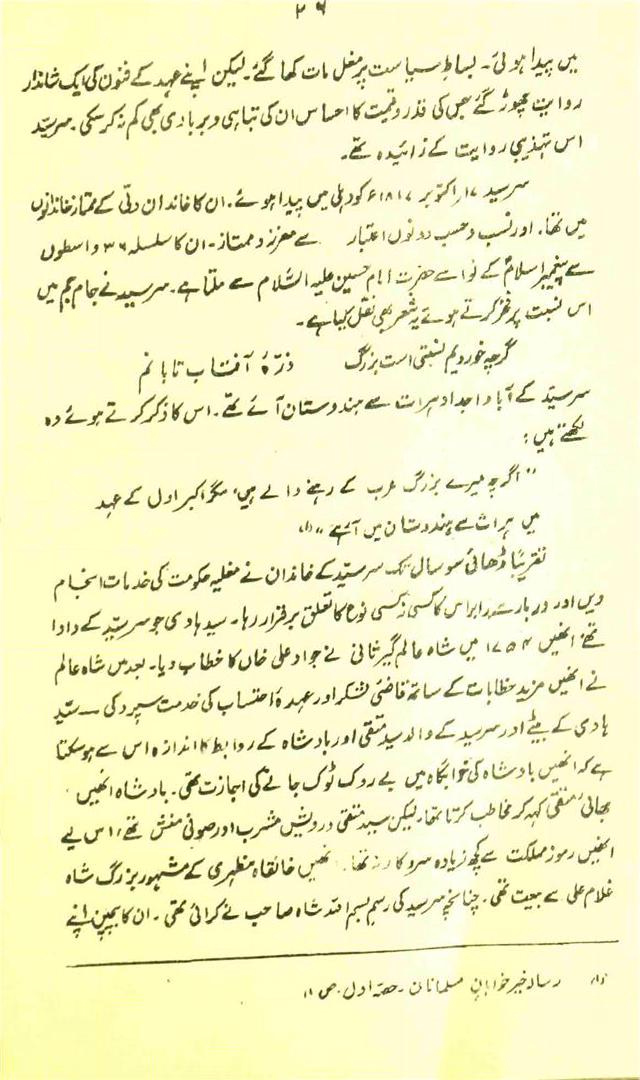 ۲۶
میں پیدا ہوئی۔ بساطِ سیاست پر مغل مات کھا گئے۔ لیکن اپنے عہد کے فنون کی ایک شاندار
روایت چھوڑ گئے جس کی قدر و قیمت کا احساس ان کی تباہی و بربادی بھی کم نہ کر سکی۔ سرسیّد
اس تہذیبی روایت کے زائیدہ تھے۔
سرسید ۱۷ر اکتوبر ۱۸۱۷ء کو دہلی میں پیدا ہوئے۔ ان کا خاندان دلّی کے ممتاز خاندانوں
میں تھا۔ اور نسب و حسب دونوں اعتبار سے معزز و ممتاز۔ ان کا سلسلہ ۳۶ واسطوں
سے پیغمبرِ اسلامؐ کے نواسے حضرت امام حسین علیہ السّلام سے ملتا ہے۔ سرسید نے جامِ جم میں
اس نسبت پر فخر کرتے ہوئے یہ شعر بھی نقل کیا ہے۔
گرچہ خوردیم نسبتی است بزرگ ذرّۂ آفتاب تابانم
سرسیّد کے آبا و اجداد ہرات سے ہندوستان آئے تھے۔ اس کا ذکر کرتے ہوئے وہ
لکھتے ہیں:
"اگرچہ میرے بزرگ عرب کے رہنے والے ہیں، مگر اکبر اول کے عہد
میں ہرات سے ہندوستان میں آئے" (۱)
تقریباً ڈھائی سو سال تک سرسیّد کے خاندان نے مغلیہ حکومت کی خدمات انجام
دیں اور دربار سے برابر اس کا کسی نہ کسی نوع کا تعلق برقرار رہا۔ سید ہادی جو سرسیّد کے دادا
تھے انھیں ۱۷۵۴ میں شاہ عالم گیر ثانی نے جواد علی خاں کا خطاب دیا۔ بعد میں شاہ عالم
نے انھیں مزید خطابات کے ساتھ قاضیٔ لشکر اور عہدۂ احتساب کی خدمت سپرد کی — سیّد
ہادی کے بیٹے اور سرسید کے والد سید متقی اور بادشاہ کے روابط کا اندازہ اس سے ہو سکتا
ہے کہ انھیں بادشاہ کی خوابگاہ میں بے روک ٹوک جانے کی اجازت تھی۔ بادشاہ انھیں
بھائی متقی کہہ کر مخاطب کرتا تھا۔ لیکن سید متقی درویش مشرب اور صوفی منش تھے، اس لیے
انھیں رموزِ مملکت سے کچھ زیادہ سروکار نہ تھا۔ انھیں خانقاہ مظہری کے مشہور بزرگ شاہ
غلام علی سے بیعت تھی۔ چنانچہ سرسید کی رسم بسم اللہ شاہ صاحب نے کرائی تھی۔ ان کا بچپن اپنے
(۱) رسالہ خیر خواہانِ مسلمانان۔ حصّہ اول۔ ص ۱۱